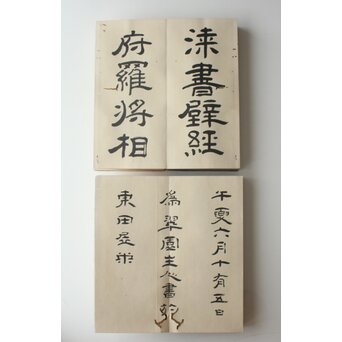 漆書壁經
府羅将相
午夏六月十有五日
為翠園主人書於
東田